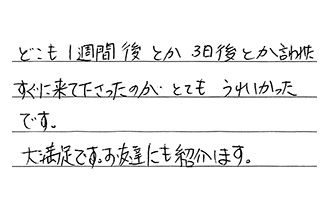 どこも1週間後とか3日後とか言われた
すぐに来て下さったのが、とても うれしかった
です。
大満足です。お友達にも紹介します。